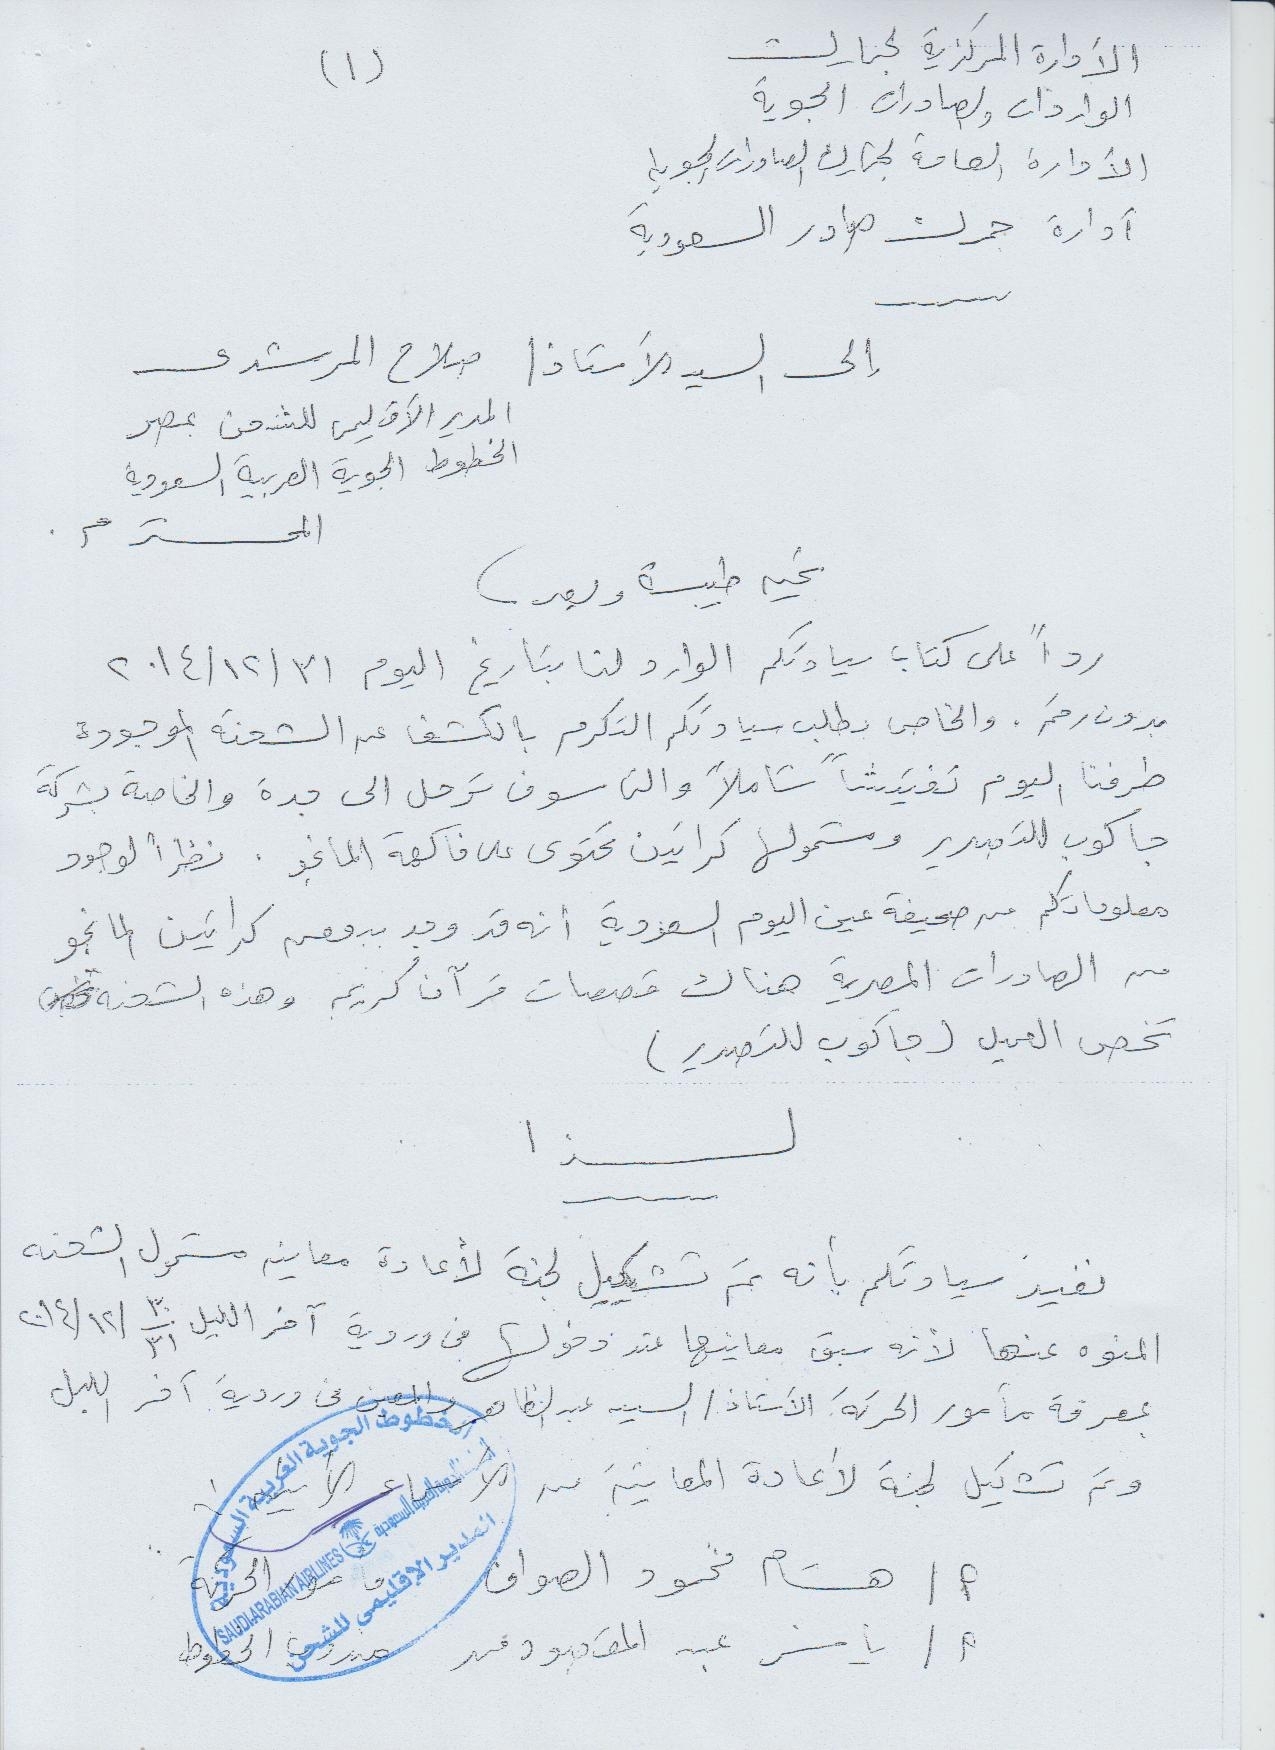 (١)
الأدارة المركزية لجمارك
الواردات والصادرات الجوية
الأدارة العامة لجمارك الصادرات الجوية
أدارة جمرك صادر السعودية
إلى السيد الأستاذ / صلاح المرشدى
المدير الأقليمى للشحن بمصر
الخطوط الجوية العربية السعودية
المحترم
تحيه طيبة وبعد
رداً على كتاب سيادتكم الوارد لنا بتاريخ اليوم ٣١/١٢/٢٠١٤
بدون رقم . والخاص بطلب سيادتكم التكرم بالكشف عن الشحنة الموجودة
طرفنا اليوم تفتيشاً شاملاً والتى سوف ترحل الى جدة والخاصة بشركة
جاكوب للتصدير ومشمولها كراتين تحتوى على فاكهة المانجو . نظراً لوجود
معلوماتكم من صحيفة عين اليوم السعودية أنه قد وجد ببعض كراتين المانجو
من الصادرات المصرية هناك قصصات قرآن كريم وهذه الشحنه
تخص العميل (جاكوب للتصدير)
لذا
نفيد سيادتكم بأنه تم تشكيل لجنة لأعادة معاينه مشمول الشحنه
المنوه عنها لأنه سبق معاينتها عند دخولها فى وردية آخر الليل ٣٠/٣١/١٢/٢٠١٤
بمعرفة مأمور الحركة الأستاذ / السيد عبد الظاهر والمعين فى وردية آخر الليل
وتم تشكيل لجنة لأعادة المعاينة من الأسماء الأتيه :
أ / هشام محمود الصواف مأمور الحركة
أ / ياسر عبد المقصود مندوب الخطوط
الخطوط الجوية العربية السعودية
الخطوط الجوية العربية السعودية
SAUDI ARABIAN AIRLINES
المدير الإقليمى للشحن